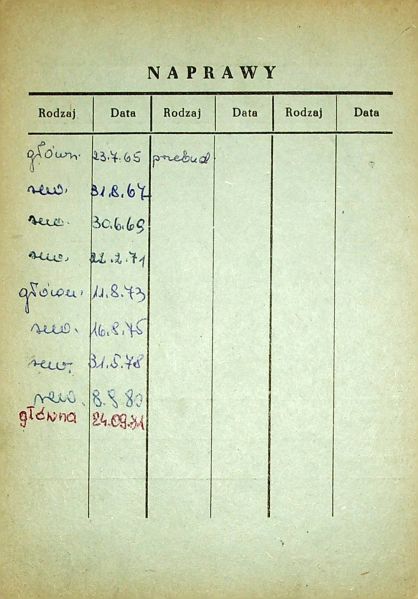 NAPRAWY
Rodzaj Data Rodzaj Data Rodzaj Data
główn. 23.7.65 przebud.
rew. 31.8.67
rew. 30.6.69
rew. 22.2.71
główn. 11.8.73
rew. 16.8.75
rew. 31.5.78
rew.
główna